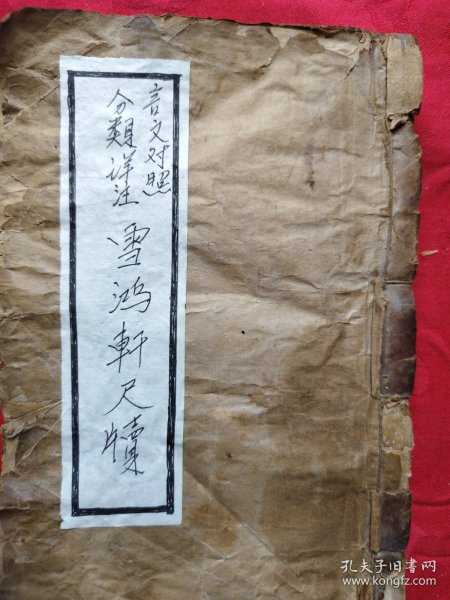 言文对照
分類详注
雪鸿軒尺牘
孔夫子旧书网
www.kongfz.com